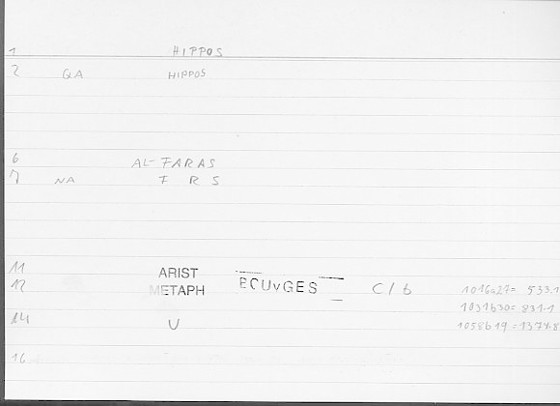 1 HIPPOS
2 QA HIPPOS
6 AL-FARAS
7 NA F R S
11 ARIST
12 METAPH ECUvGES C/b 1016a27= 533.1
1031b30= 831.1
14 U 1058b19=1377.8
16